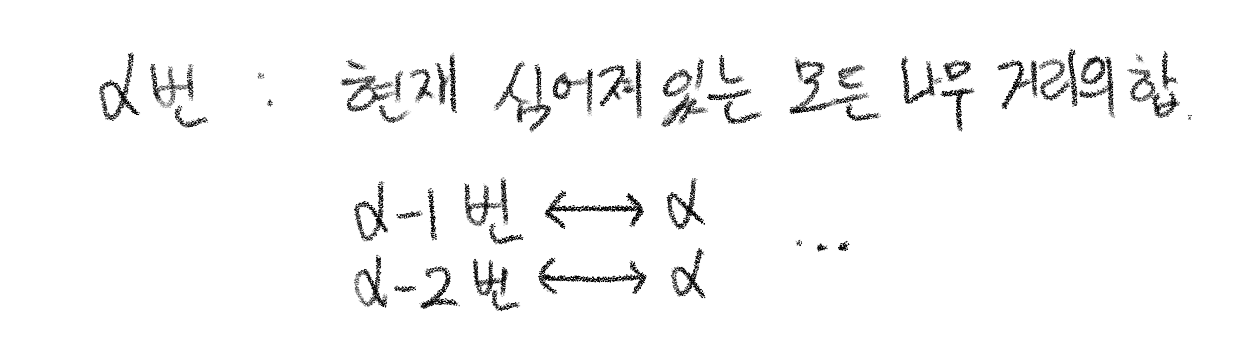 α번 : 현재 심어져있는 모든 나무 거리의 합.
α-1번 ↔ α ...
α-2번 ↔ α